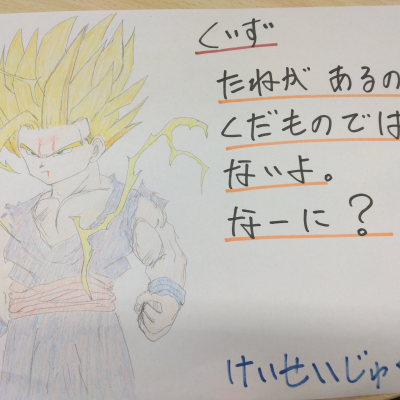 くいず
たねが あるの
くだものでは
ないよ。
なーに？
けいせいじゅ